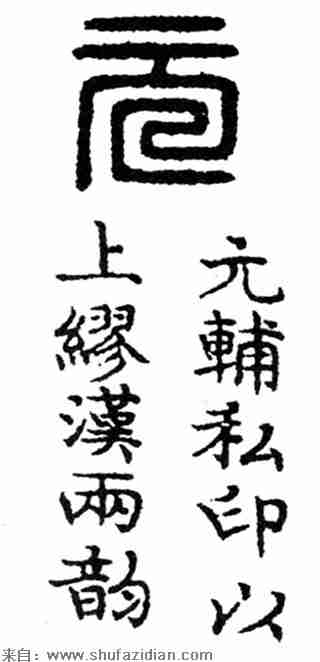 元
元輔私印以
上繆漢兩韵
来自：www.shufazidian.com